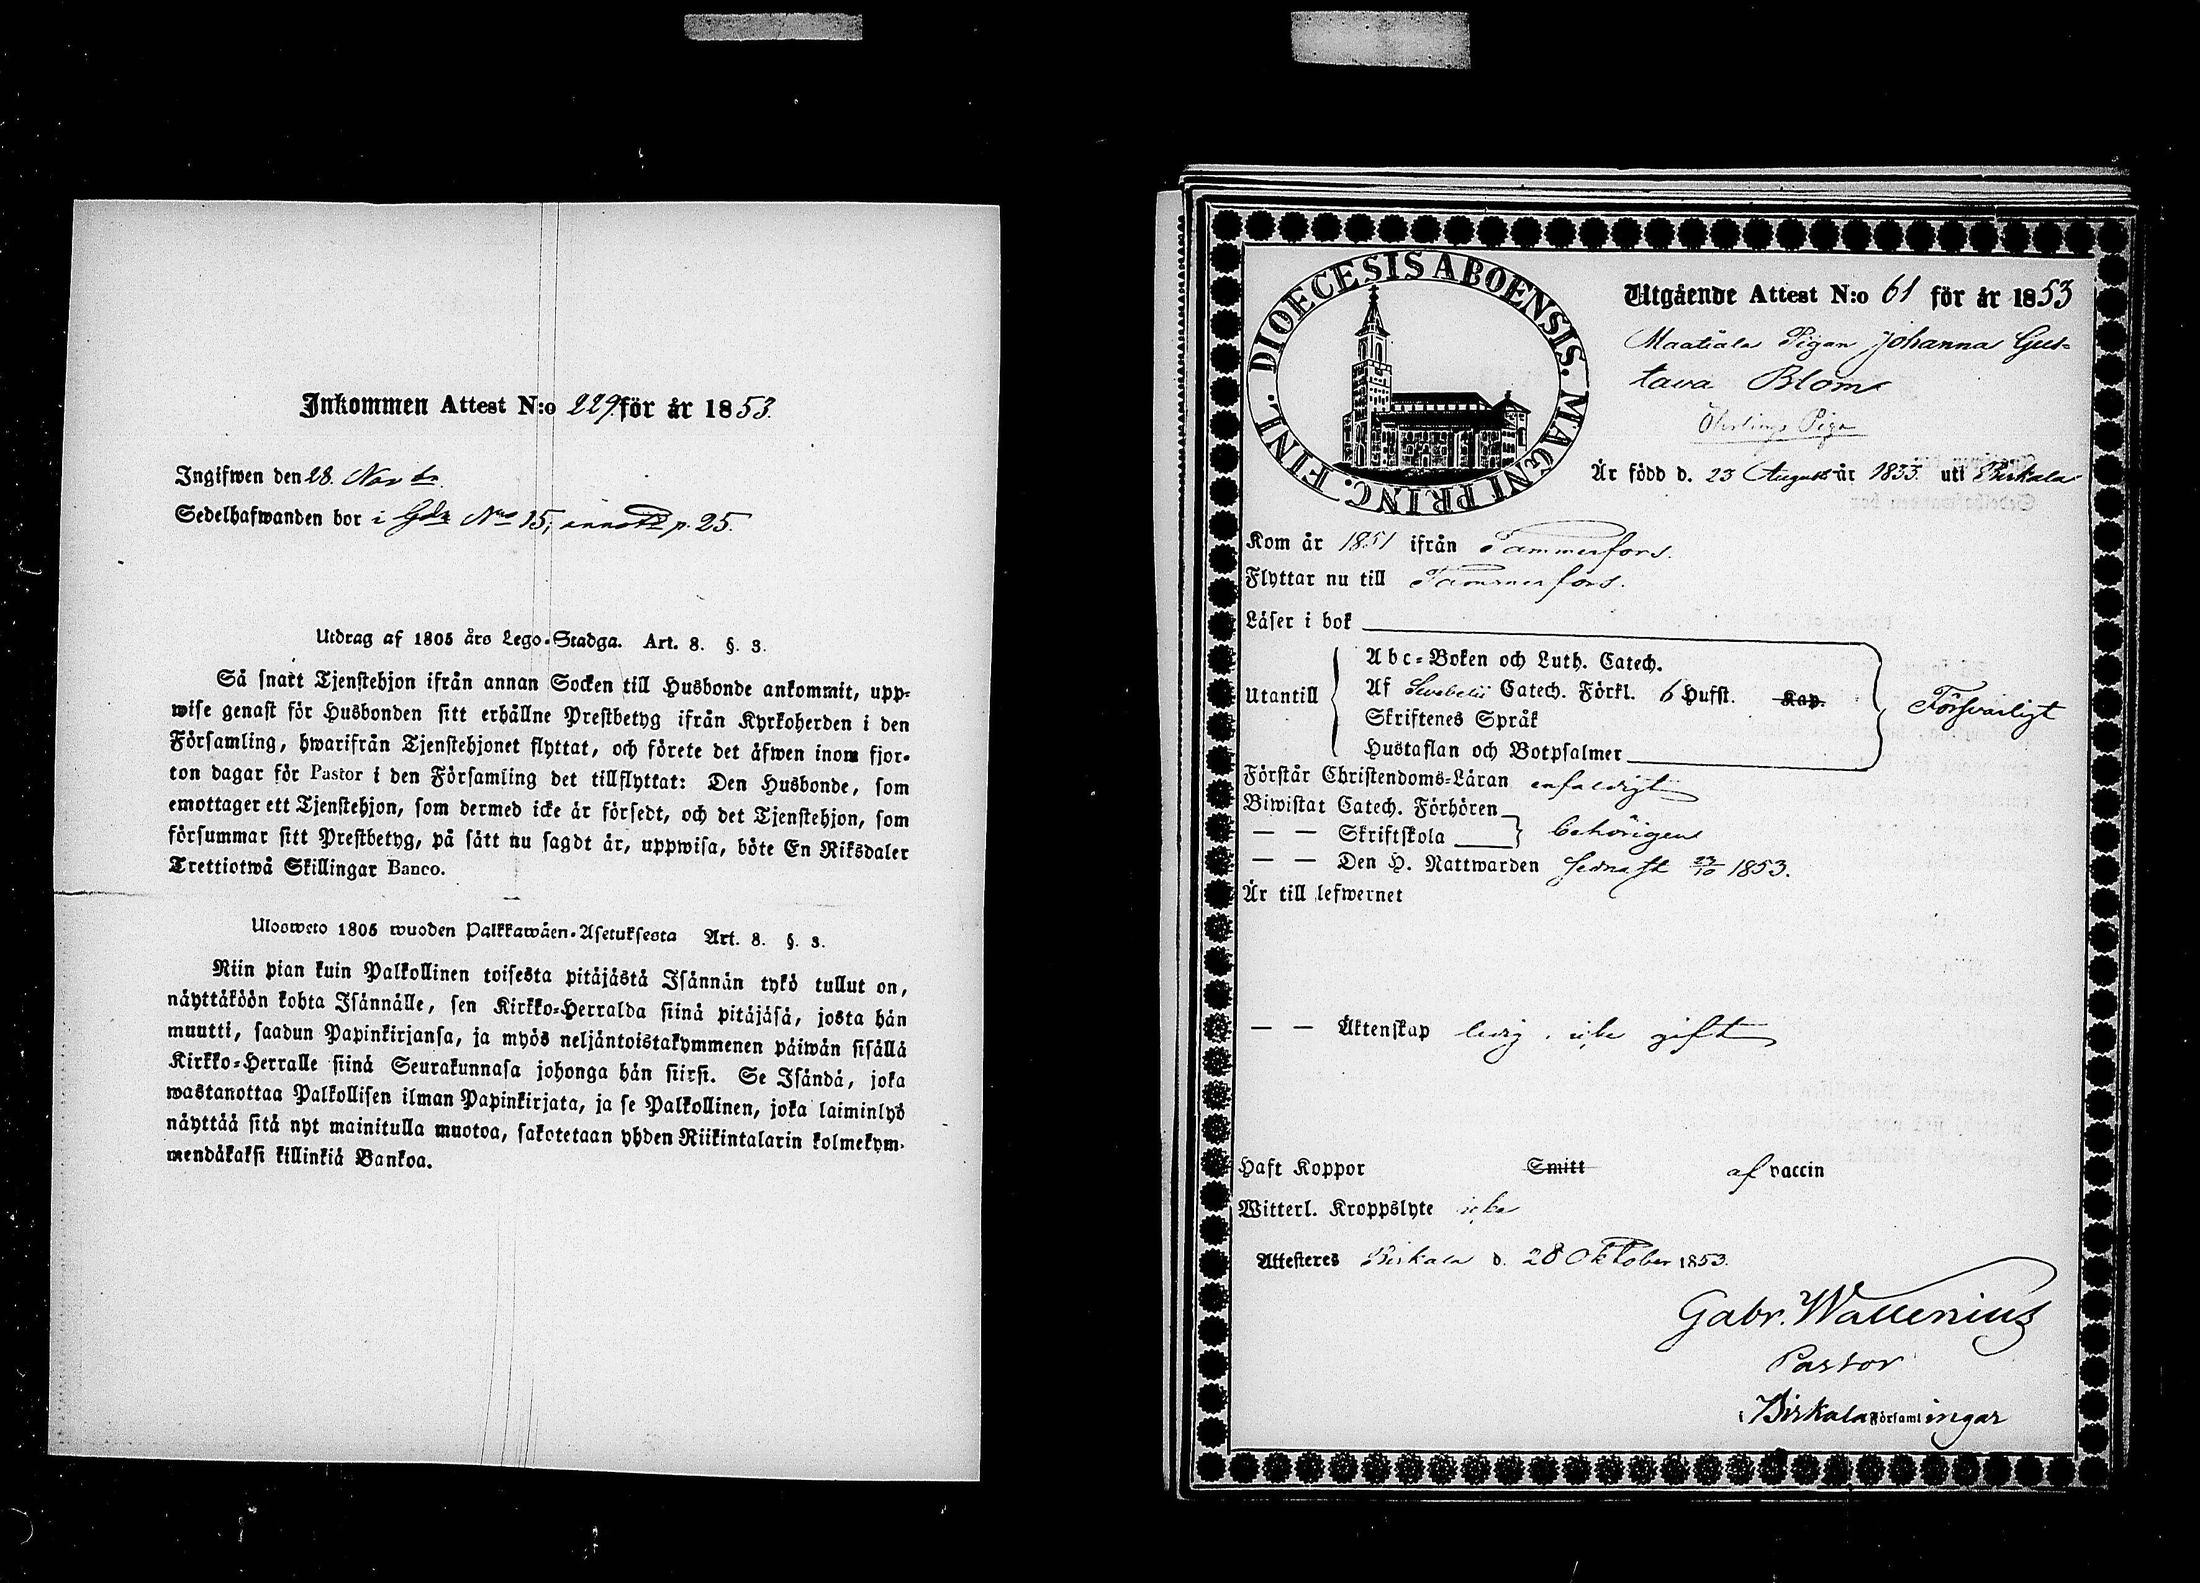 Inkommen Attest N:o 229 för år 1853.
Ingifwen den 28. Novbr.
Sedelhafwanden bor i Gdn Nro 15, annott p. 25.
Utdrag af 1805 års Lego-Stadga. Art. 8. §. 3.
Så snart Tjenstehjon ifrån annan Socken till Husbonde ankommit, upp-
wise genast för Husbonden sitt erhållne Prestbetyg ifrån Kyrkoherden i den
Församling, hwarifrån Tjenstehjonet flyttat, och förete det äfwen inom fjor-
ton dagar för Pastor i den Församling det tillflyttat: Den Husbonde, som
emottager ett Tjenstehjon, som dermed icke är försedt, och det Tjenstehjon, som
försummar sitt Prestbetyg, på sätt nu sagdt är, uppwisa, böte En Riksdaler
Trettiotwå Skillingar Banco.
Ulosweto 1805 wuoden Palkkawäen-Asetuksesta Art. 8. §. 3.
Niin pian kuin Palkollinen toisesta pitäjästä Isännän tykö tullut on,
näyttäköön kohta Isännälle, sen Kirkko-Herralda siinä pitäjäsä, josta hän
muutti, saadun Papinkirjansa, ja myös neljäntoistakymmenen päiwän sisällä
Kirkko-Herralle siinä Seurakunnasa johonga hän siirsi. Se Isändä, joka
wastanottaa Palkollisen ilman Papinkirjata, ja se Palkollinen, joka laiminlyö
näyttää sitä nyt mainitulla muotoa, sakotetaan yhden Riikintalarin kolmekym-
mendäkaksi killinkiä Bankoa.
DIOECESIS ABOENSIS. MAGNI PRINC. FINL.
Utgående Attest N:o 61 för år 1853
Maatiala Pigan Johanna Gus-
tava Blom
Piga
Är född d. 23 Augusti år 1833. uti Birkala
Kom år 1851 ifrån Tammerfors.
Flyttar nu till Tammerfors.
Läser i bok
Utantill
Abc-Boken och Luth. Catech.
Af Swebelii Catech. Förkl. 6 Hufst. Kap.
Skriftenes Språk
Hustaflan och Botpsalmer
Försvarligt
Förstår Christendoms-Läran enfaldigt
Biwistat Catech. Förhören
— — Skriftskola
behörigen
— — Den H. Nattwarden sednast 23/10 1853.
Är till lefwernet
— — Äktenskap ledig. icke gift
Haft Koppor Smitt af vaccin
Witterl. Kroppslyte icke
Attesteres Birkala d. 28 Oktober 1853.
Gabr. Wallenius
Pastor
i Birkala Församlingar